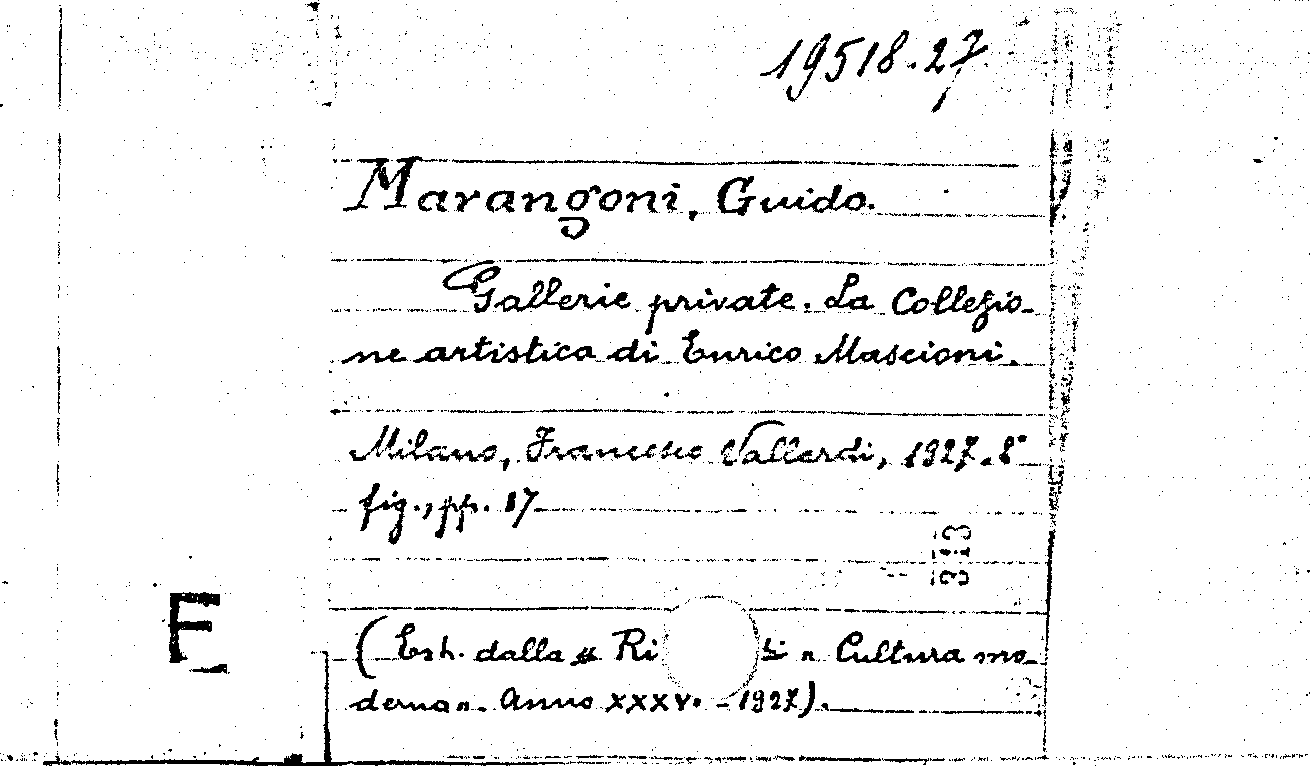 19518.27
Marangoni, Guido.
Gallerie private. La Collezio-
ne artistica di Enrico Mascioni.
Milano, Francesco Vallardi, 1927. 8°
fig., pp. 17
313
E
(Estr. dalla " Ri " Cultura mo-
derna". Anno XXXV. - 1927).